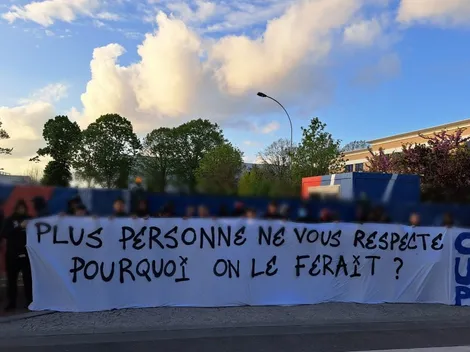 PLUS PERSONNE NE VOUS RESPECTE
POURQUOI ON LE FERAIT ?